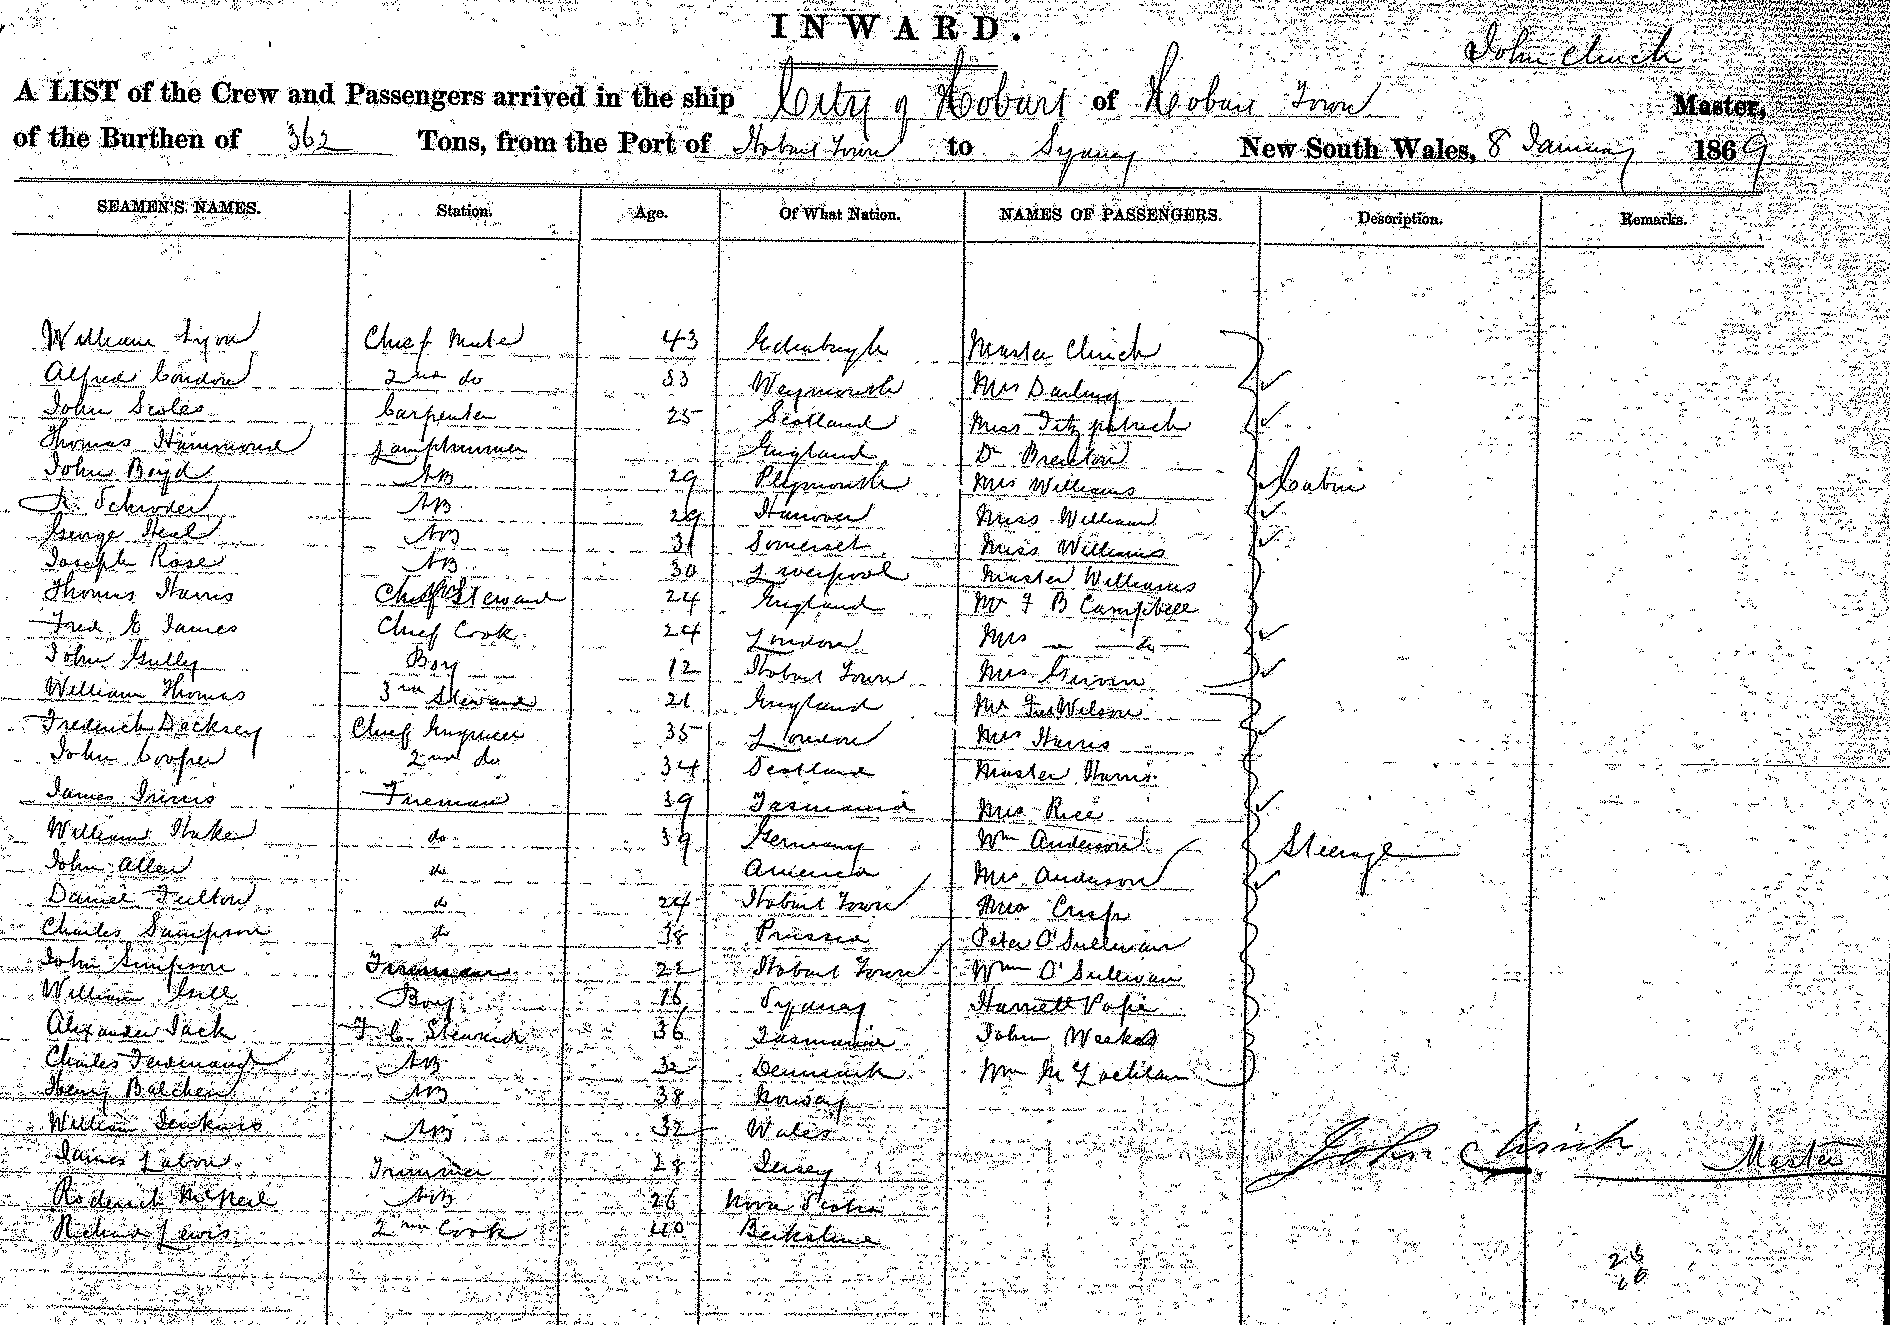 INWARD.
John Clinch
A LIST of the Crew and Passengers arrived in the ship City of Hobart of Hobart Town Master,
of the Burthen of 362 Tons, from the Port of Hobart Town to Sydney New South Wales, 8 January 1869
SEAMEN'S NAMES. Station. Age. Of What Nation. NAMES OF PASSENGERS. Description. Remarks.
William Lyon Chief Mate 43 Edinburgh Master Clinch
Alfred Condon 2nd do 33 Weymouth Mrs Darling
John Scoles Carpenter 25 Scotland Miss Fitzpatrick
Thomas Hammond Lamptrimmer England Dr
John Boyd AB 29 Plymouth Mrs Williams Cabin
R. Schroder AB 29 Hanover Miss William
George Heal AB 31 Somerset Miss Williams
Joseph Rose AB 30 Liverpool Master Williams
Thomas Harris Chief Steward 24 England Mr F B Campbell
Fred E James Chief Cook 24 London Mrs — do —
John Gully Boy 12 Hobart Town Mrs
William Thomas 3rd Steward 21 England Mr Wilson
Frederick Dacksey Chief Engineer 35 London Mrs Harris
John Cooper 2nd do 34 Scotland Master Harris
James Fireman 39 Tasmania Mrs Rice
William do 39 Germany Wm Anderson Steerage
John Allen do America Mrs Anderson
Daniel Fulton do 24 Hobart Town Mrs Crisp
Charles Sampson do 38 Prussia Peter O'Sullivan
John Simpson Fireman 22 Hobart Town Wm O'Sullivan
William Gill Boy 16 Sydney Harriett Pope
Alexander Jack F. C. Steward 36 Tasmania John Weekes
Charles Ferdinand AB 32 Denmark Wm McLachlan
Henry Balchen AB 38 Norway
William Jenkins AB 32 Wales
James Labon Trimmer 28 Jersey
John Clinch Master
Roderick McNeil AB 26 Nova Scotia
Richard Lewis 2nd Cook 40 Berkshire
28